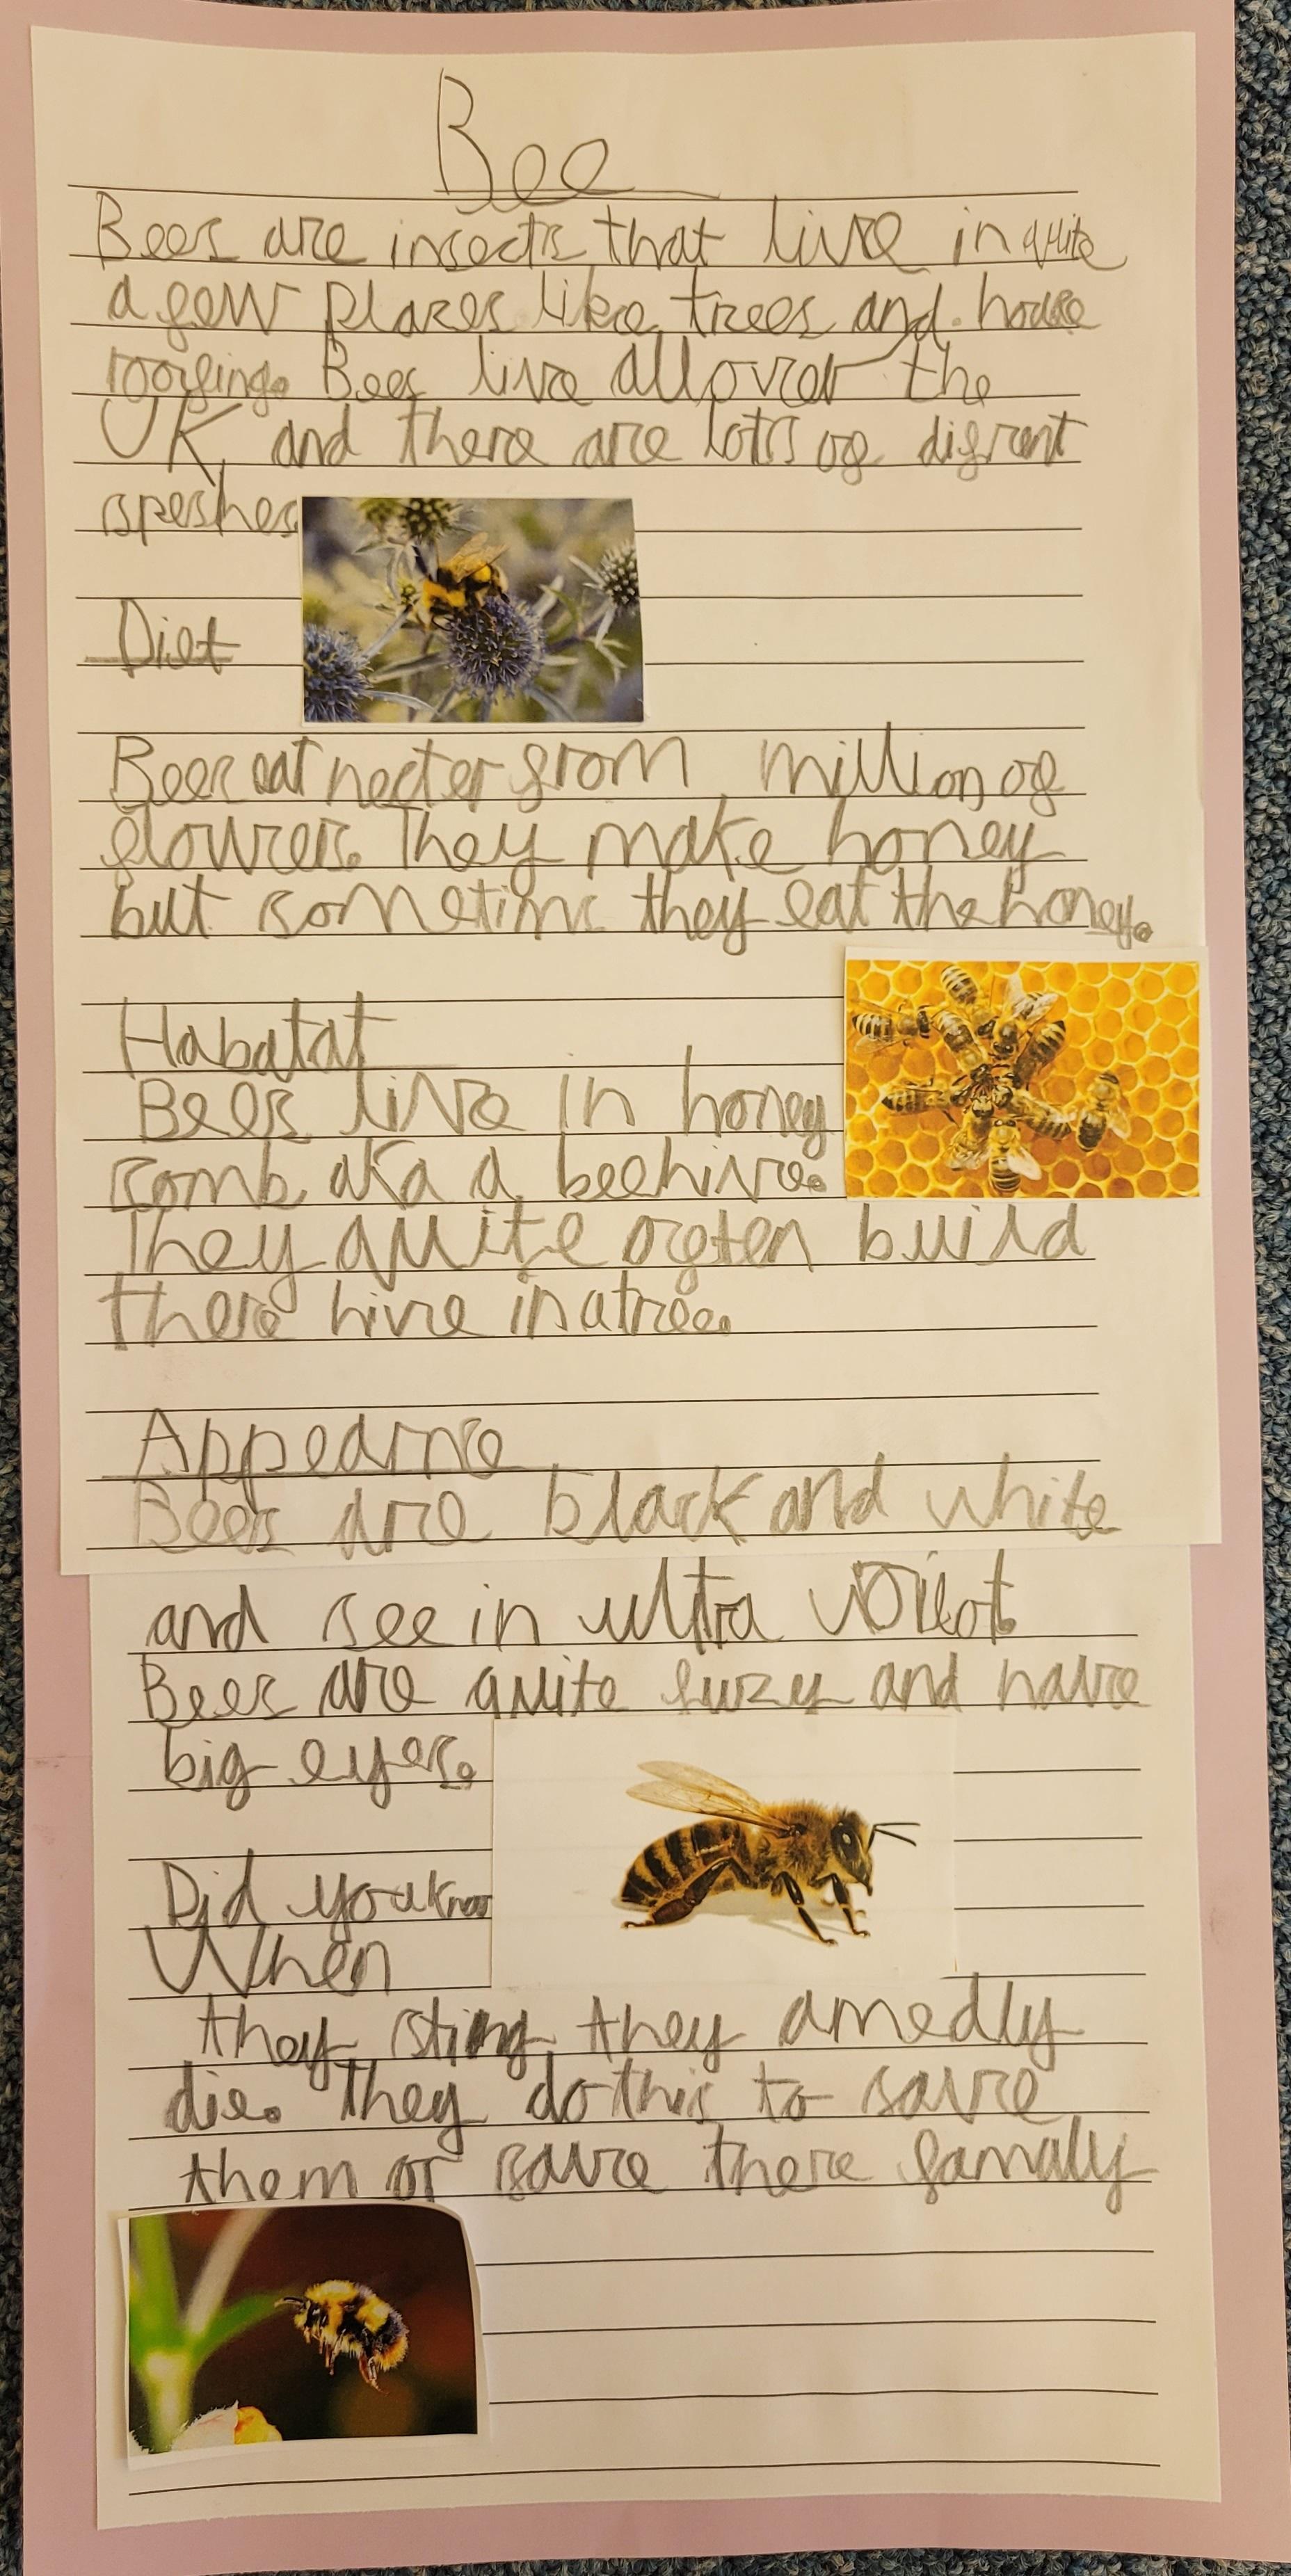 Bee
Bees are insects that live in quite
a few places like trees and house
roofing. Bees live all over the
UK and there are lots of difrent
speshes
Diet
Bees eat necter from million of
flowers. They make honey
but sometims they eat the honey.
Habatat
Bees live in honey
comb aka a beehive.
They quite ogten build
there hive in a tree.
Appearnce
Bees are black and white
and see in ultra voilot.
Bees are quite fuzy and have
big eyes.
Did you know
When
they sting they amedly
die. They do this to save
them or save there famaly